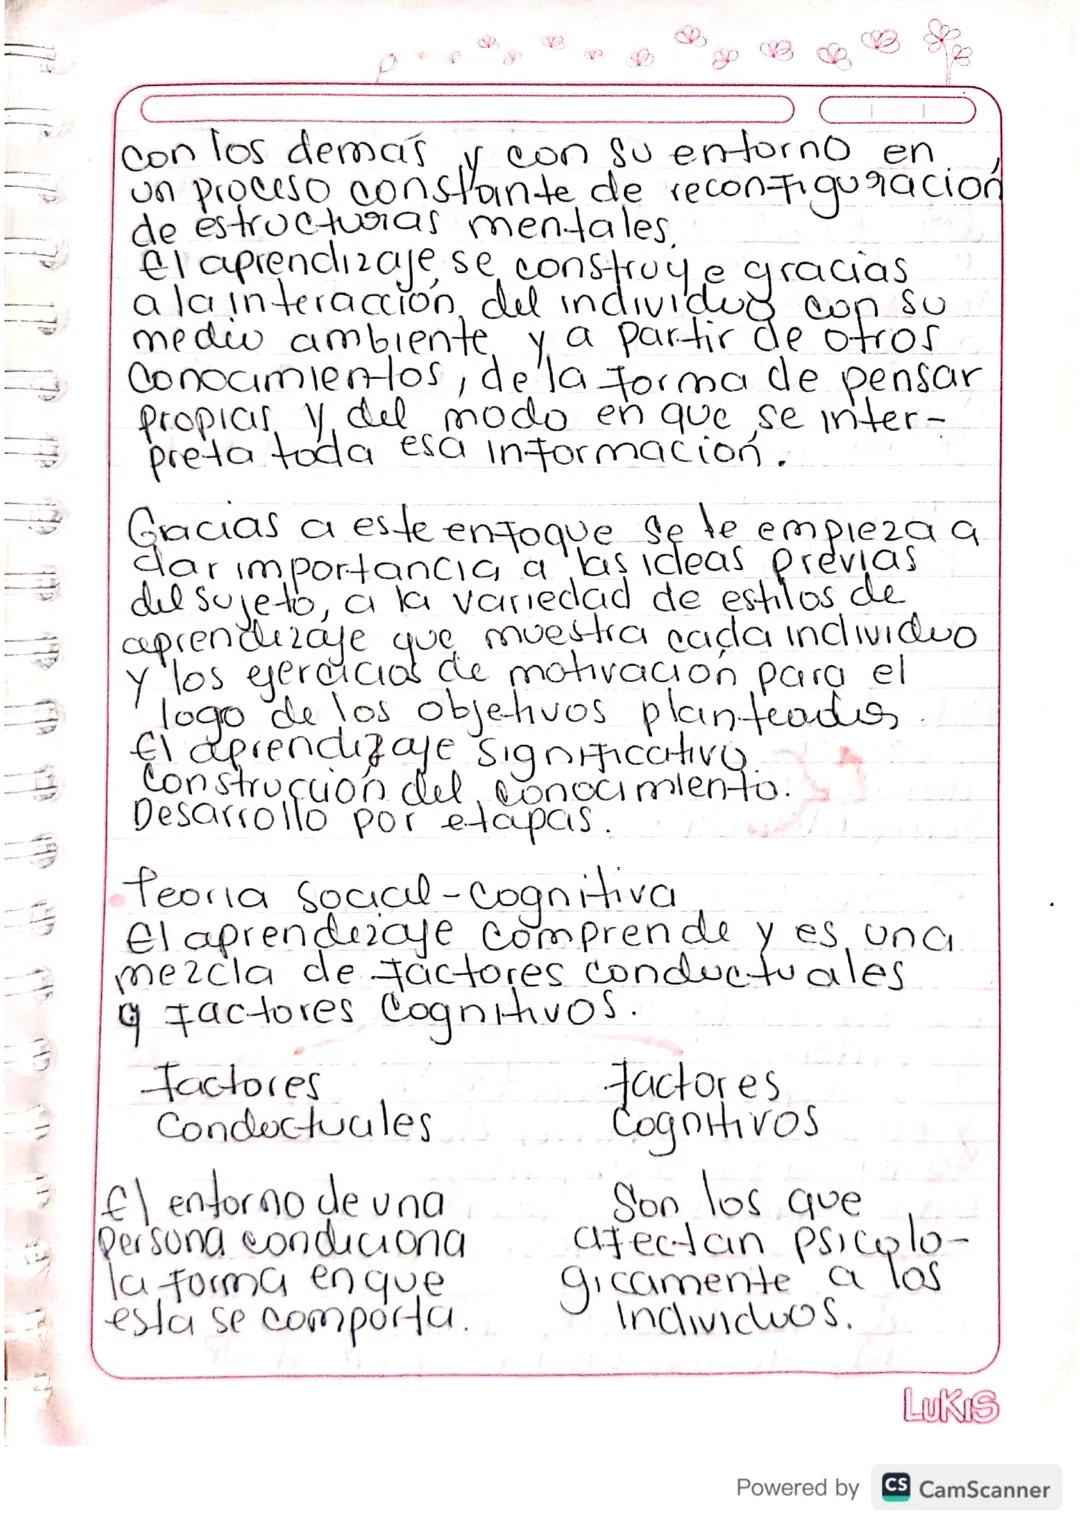 con los demás y con su entorno en
un proceso constante de reconfiguración
de estructuras mentales.
El aprendizaje se construye gracias
a la interacción del individuo con su
medio ambiente y a partir de otros
conocimientos, de la forma de pensar
propias y del modo en que se inter-
preta toda esa información.
Gracias a este enfoque se le empieza a
dar importancia a las ideas previas
del sujeto, a la variedad de estilos de
aprendizaje que muestra cada individuo
y los ejercicios de motivación para el
logo de los objetivos planteados.
El aprendizaje significativo.
Construcción del conocimiento.
Desarrollo por etapas.
Teoria Social-Cognitiva
El aprendizaje comprende y es una
mezcla de factores conductuales
y factores Cognitivos.
Factores
Conductuales
Factores
Cognitivos
El entorno de una
persona condiciona
la forma en que
esta se comporta.
Son los que
afectan psicolo-
gicamente a los
individuos.
LuKiS
Powered by CS CamScanner